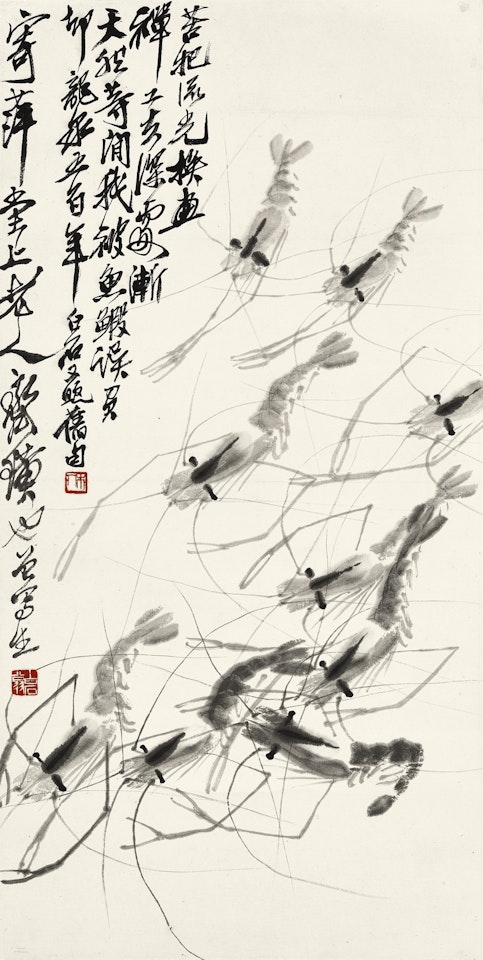 苦把流光換畫
禪工夫深處漸
天然等閒我被魚鰕誤負
却龍泉五百年 白石又題舊句
寄萍堂上老人齊璜也曾寫生